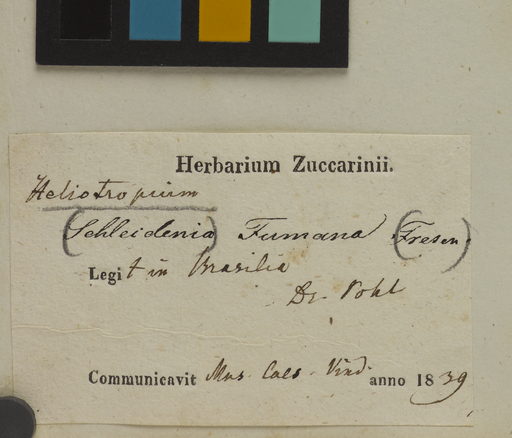 Herbarium Zuccarinii.
Heliotropium
(Schleidenia) Fumana (Fresen.)
Legit in Brasilia
Dr. Pohl
Communicavit Mus. Caes. Vind. anno 1839